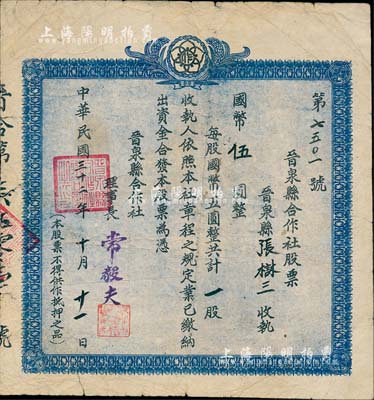 上海陽明拍賣
第七五〇一號
晉泉縣合作社股票
晉泉縣張樹三收執
國幣伍圓整
每股國幣伍圓整共計一股
收執人依照本社章程之規定業已繳納
出資金合發本股票為憑
晉泉縣合作社
理事長 常毅夫
中華民國三十二年十月廿一日
(本股票不得供作抵押之品)
上海陽明拍賣